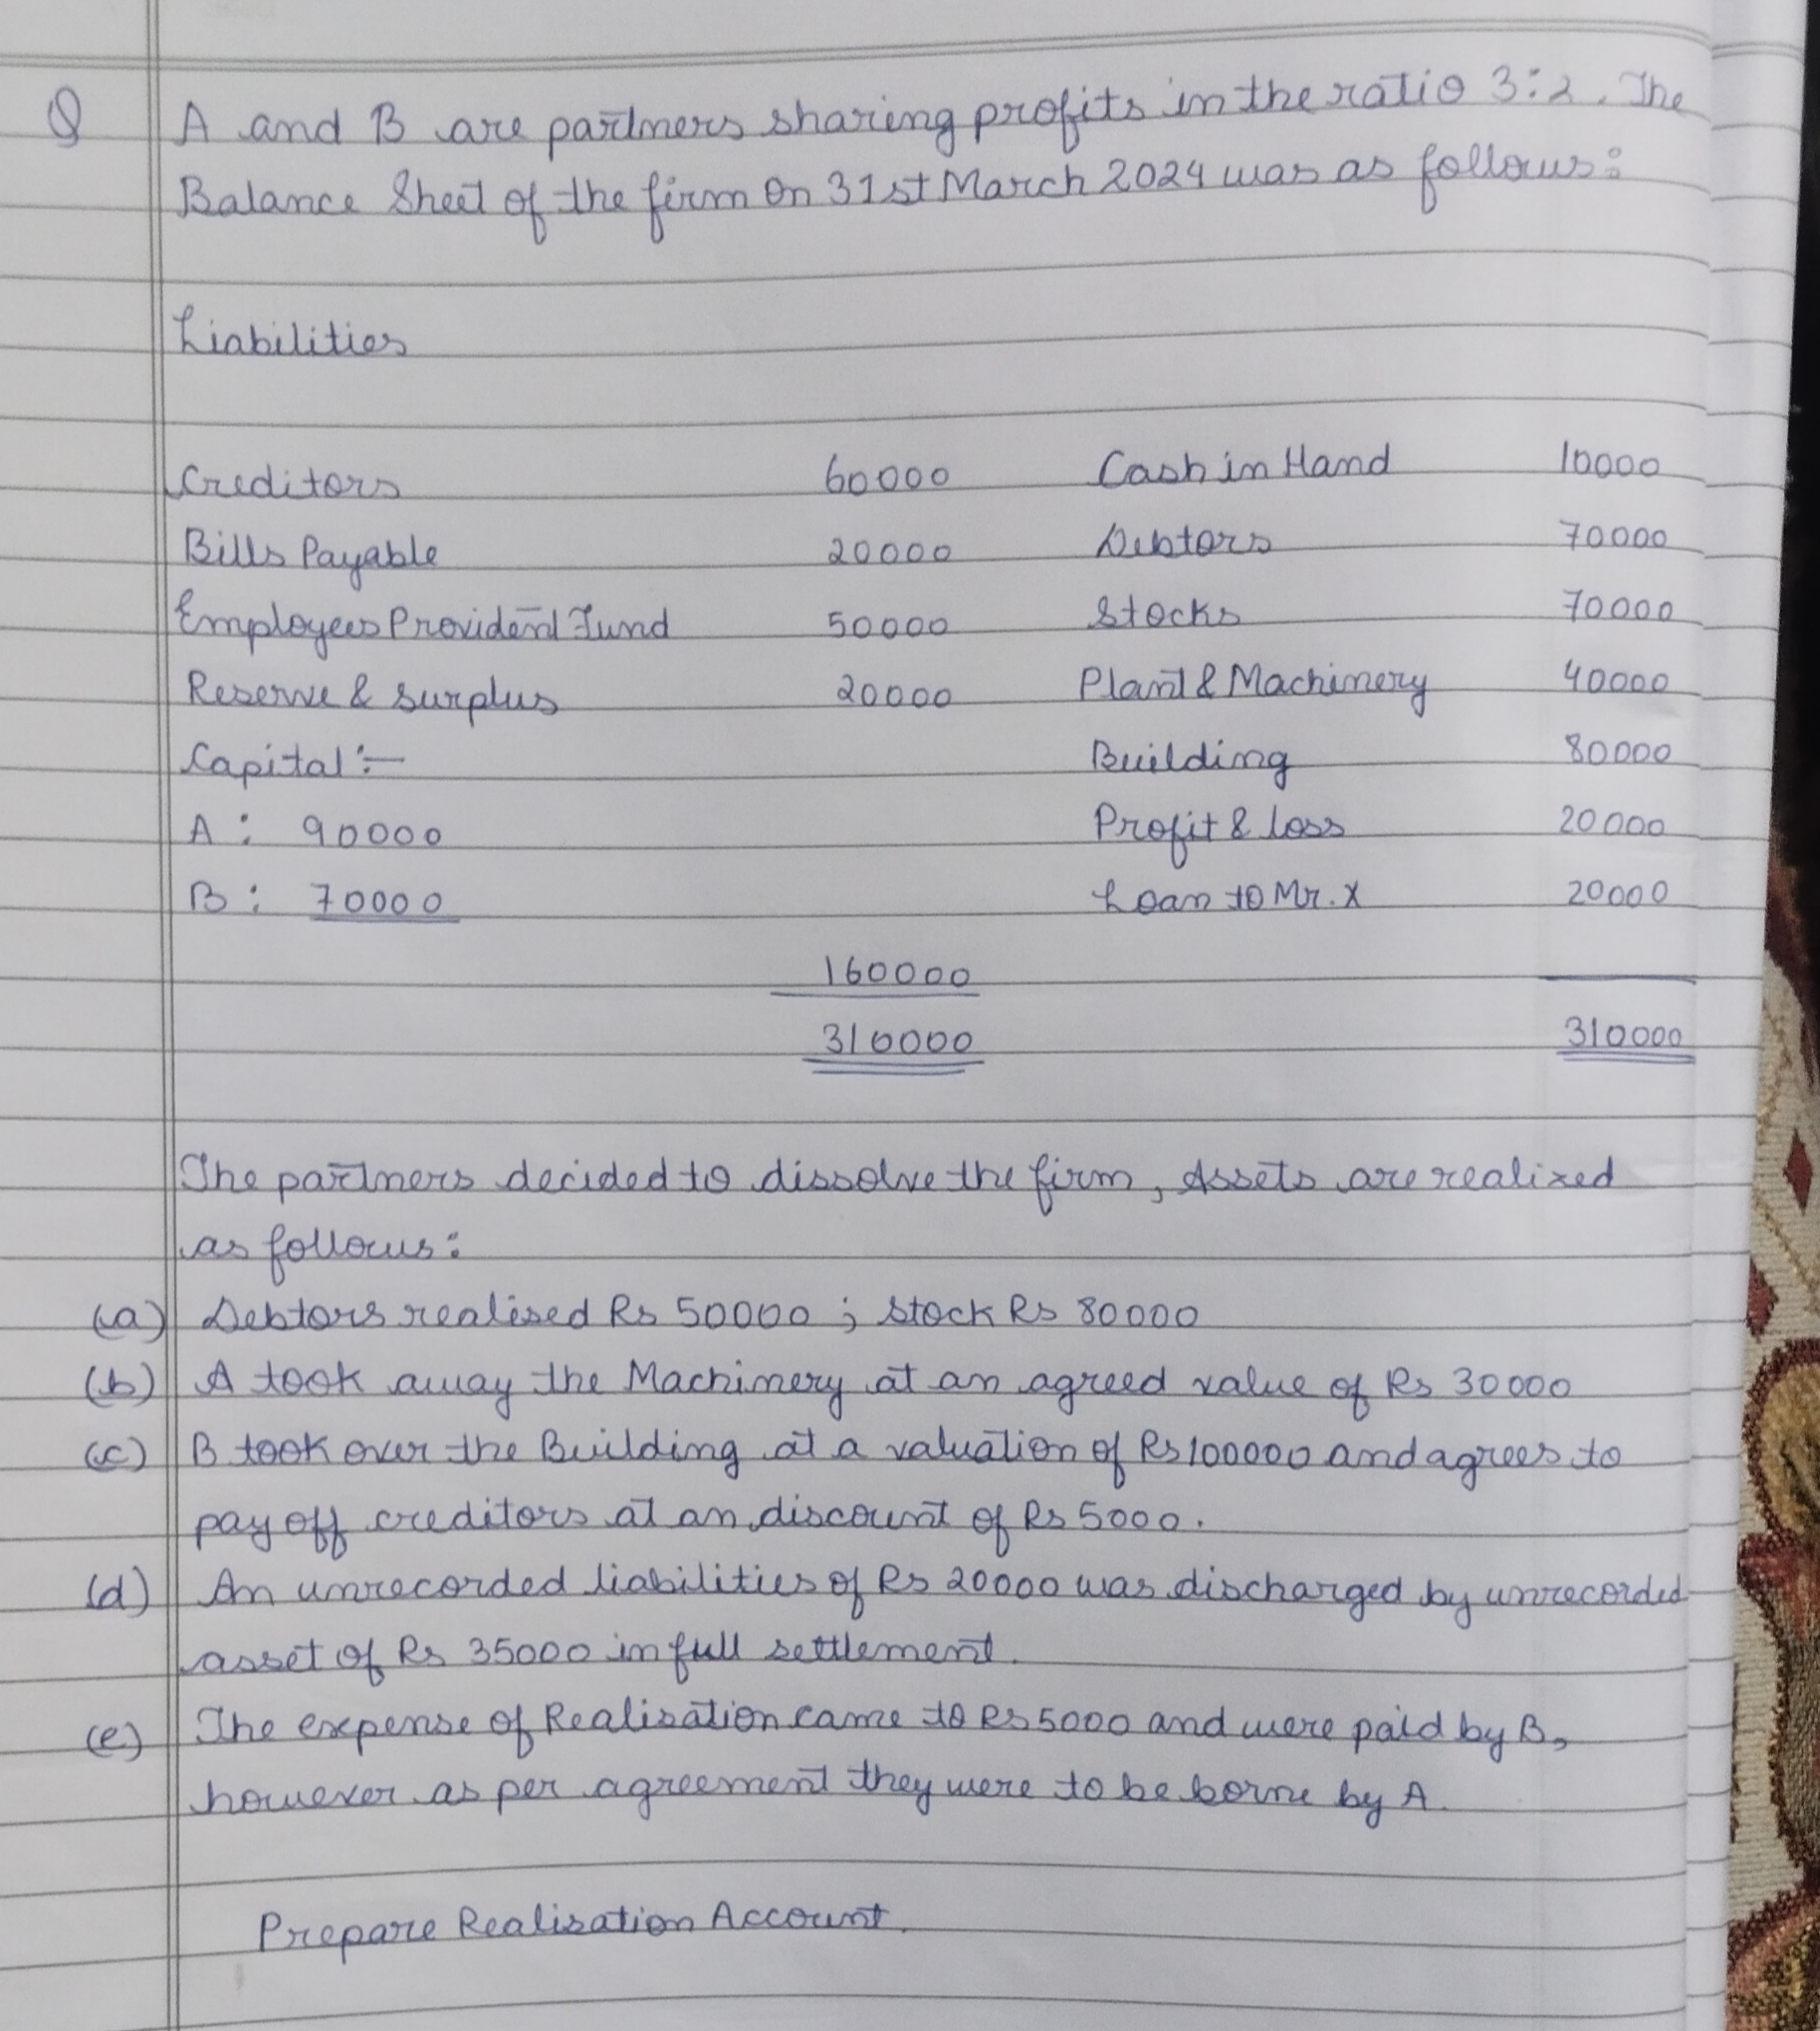 Q A and B are partners sharing profits in the ratio 3:2. The
Balance Sheet of the firm on 31st March 2024 was as follows:
Liabilities
Creditors 60000 Cash in Hand 10000
Bills Payable 20000 Debtors 70000
Employees Provident Fund 50000 Stocks 70000
Reserve & surplus 20000 Plant & Machinery 40000
Capital :- Building 80000
A : 90000 Profit & loss 20000
B : 70000 Loan to Mr. X 20000
160000
310000 310000
The partners decided to dissolve the firm, Assets are realized
as follows:
(a) Debtors realised Rs 50000 ; stock Rs 80000
(b) A took away the Machinery at an agreed value of Rs 30000
(c) B took over the Building at a valuation of Rs 100000 and agrees to
pay off creditors at an discount of Rs 5000.
(d) An unrecorded liabilities of Rs 20000 was discharged by unrecorded
asset of Rs 35000 in full settlement.
(e) The expense of Realisation came to Rs 5000 and were paid by B,
however as per agreement they were to be borne by A.
Prepare Realisation Account.